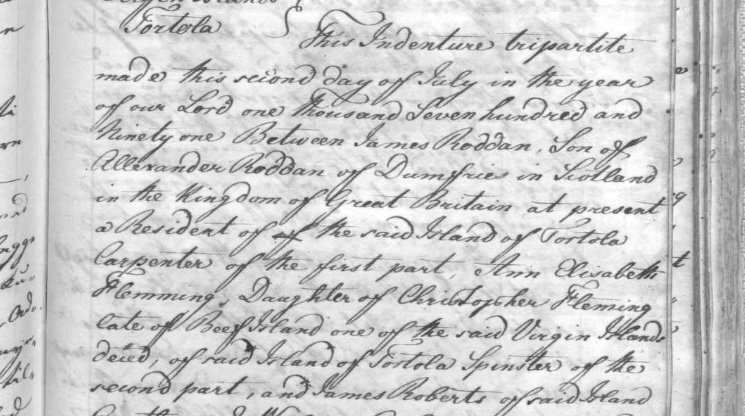 Virgin Islands
Tortola
This Indenture tripartite
made this second day of July in the year
of our Lord one thousand Seven hundred and
Ninety one Between James Roddan, Son of
Allexander Roddan of Dumfries in Scotland
in the Kingdom of Great Britain at present
a Resident of of the said Island of Tortola
Carpenter of the first part, Ann Elisabeth
Flemming, Daughter of Christopher Fleming
late of Beef Island one of the said Virgin Islands
deced, of said Island of Tortola Spinster of the
second part, and James Roberts of said Island